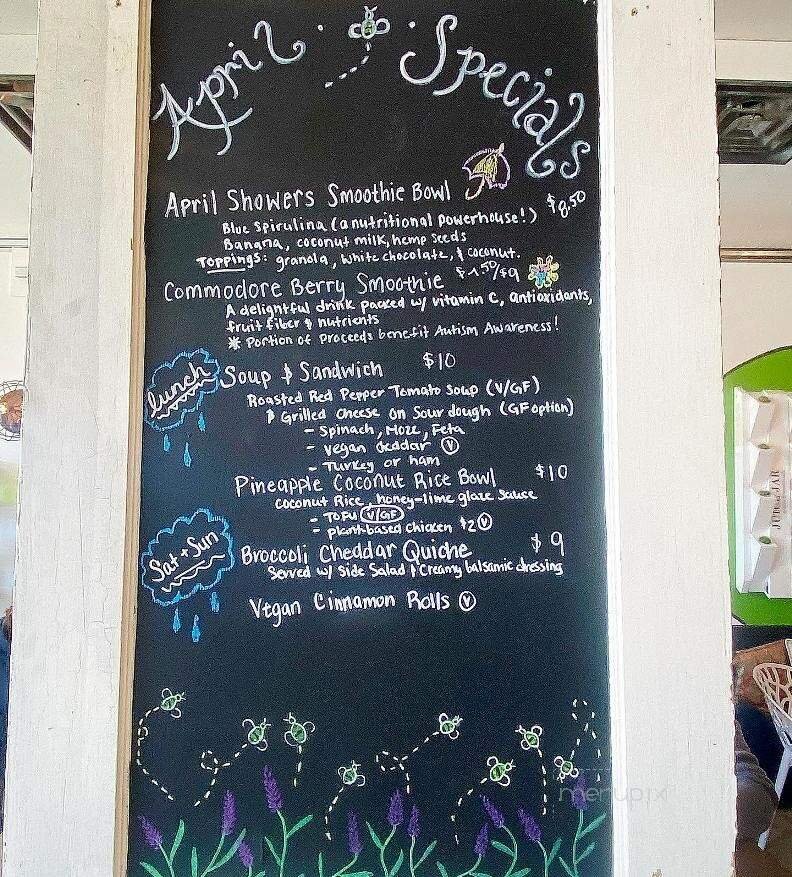 April Specials
April Showers Smoothie Bowl $8.50
Blue Spirulina (a nutritional powerhouse!)
Banana, coconut milk, hemp seeds
Toppings: granola, white chocolate, & coconut.
Commodore Berry Smoothie /$9
A delightful drink packed w/ vitamin C, antioxidants,
fruit fiber & nutrients
* Portion of Proceeds benefit Autism Awareness!
Lunch
Soup & Sandwich $10
Roasted Red Pepper Tomato Soup (V/GF)
& Grilled Cheese on Sourdough (GF option)
- Spinach, Mozz, Feta
- vegan cheddar V
- Turkey or ham
Pineapple Coconut Rice Bowl $10
Coconut Rice, honey-lime glaze sauce
- TOFU V/GF
- plant-based chicken $2 V
Sat + Sun
Broccoli Cheddar Quiche $9
Served w/ Side Salad & Creamy balsamic dressing
Vegan Cinnamon Rolls V
menupix